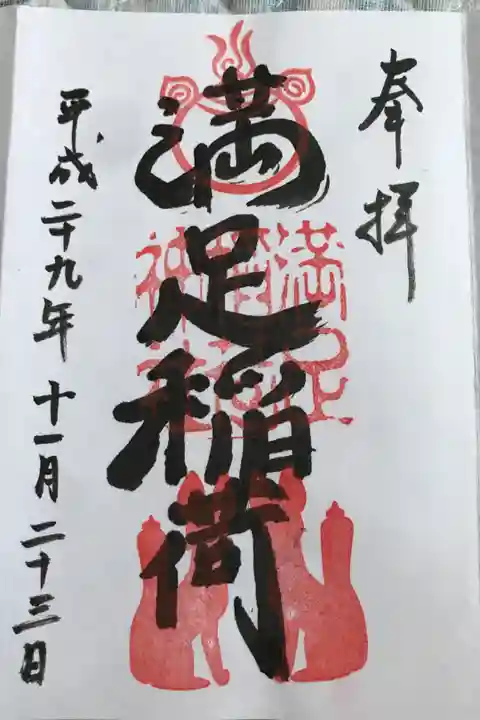 奉拝
満足稲荷
満足稲荷神社
平成二十九年十一月二十三日